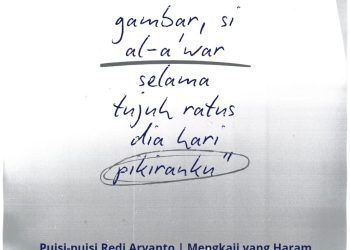 gambar, si
al-a'war
selama
tujuh ratus
dia hari
pikiranku"
Puisi-puisi Redi Aryanto | Mengkaji yang Haram